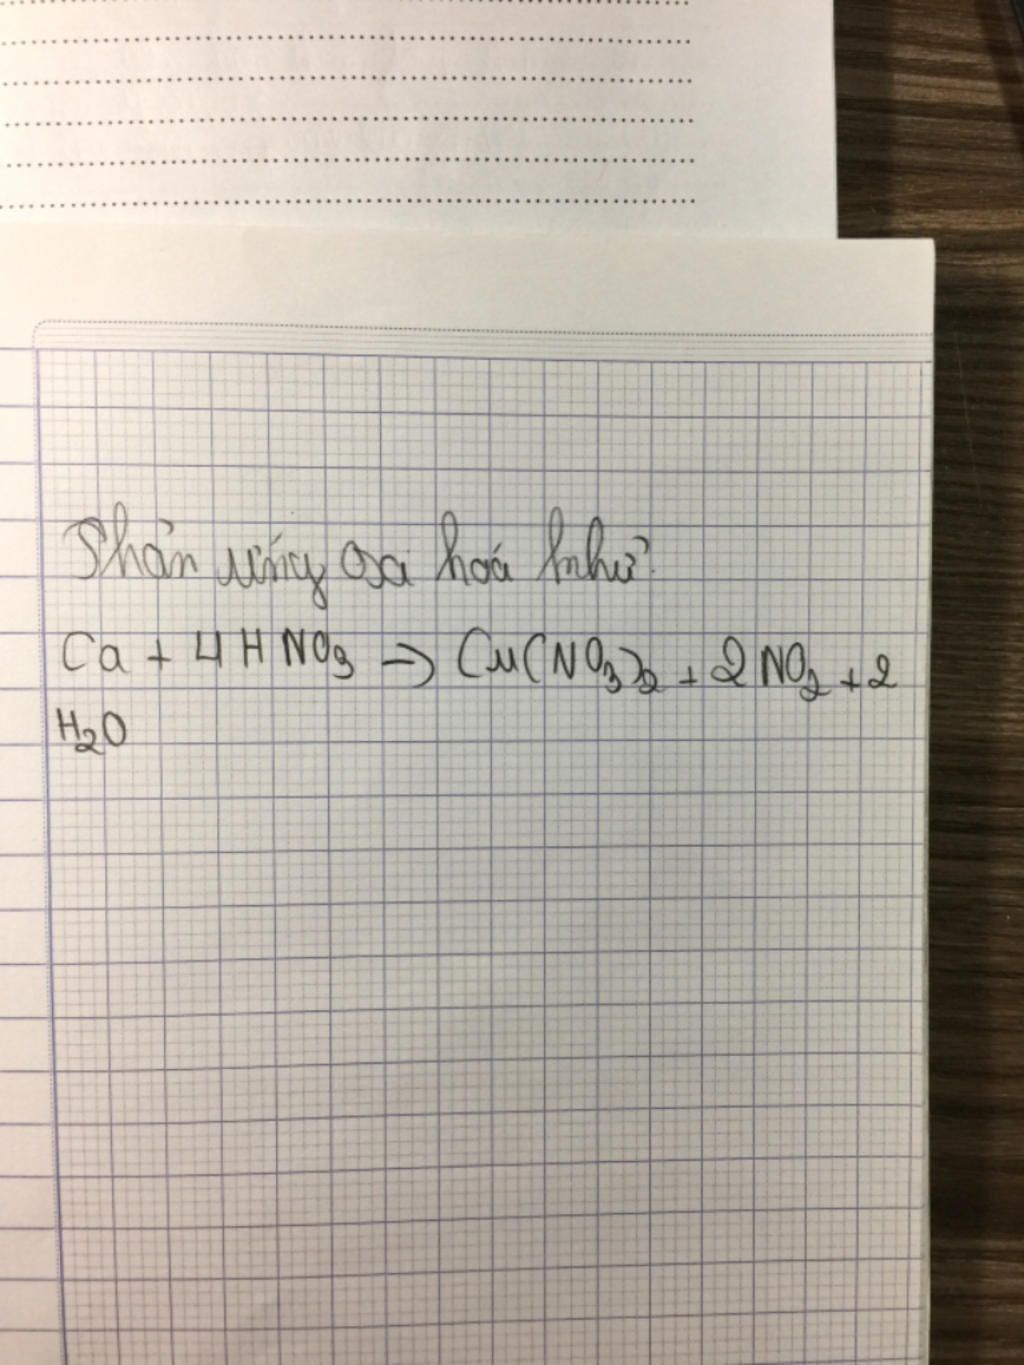 Phản ứng oxi hoá khử
Ca + 4 H NO3 → Cu(NO3)2 + 2 NO2 + 2
H2O